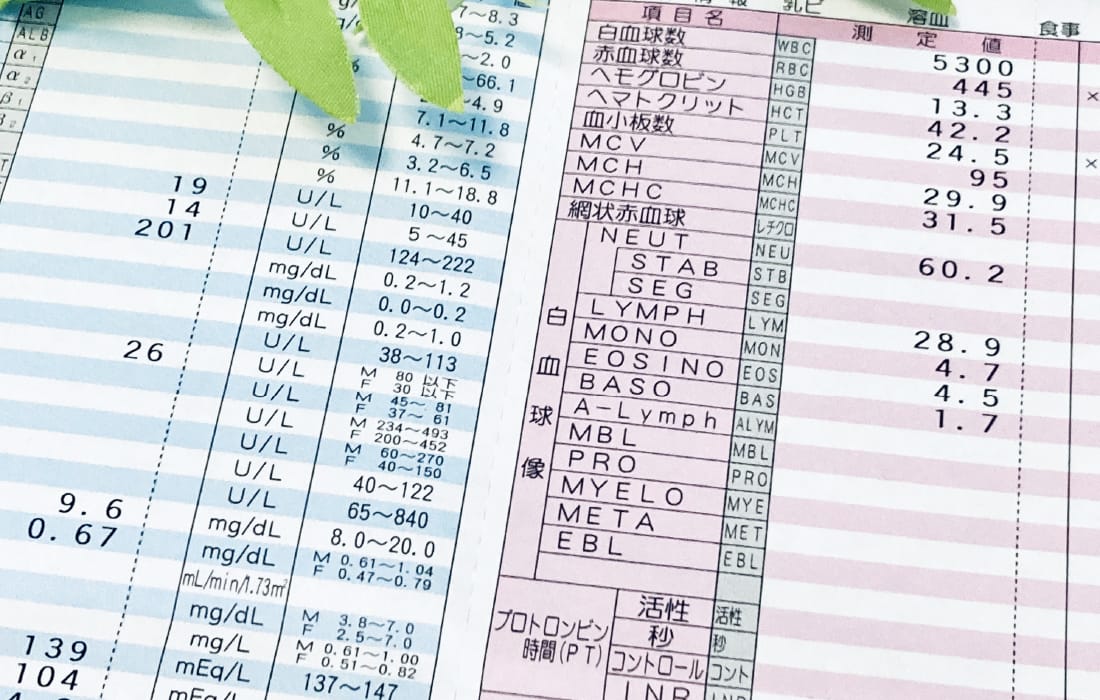 AG
ALB
α1
α2
β1
β2
7～8.3
～5.2
～2.0
～66.1
4.9
7.1～11.8
% 4.7～7.2
% 3.2～6.5
% 11.1～18.8
19 U/L 10～40
14 U/L 5～45
201 U/L 124～222
mg/dL 0.2～1.2
mg/dL 0.0～0.2
mg/dL 0.2～1.0
U/L 38～113
26 U/L M 80 以下
F 30 以下
U/L M 45～ 81
F 37～ 61
U/L M 234～493
F 200～452
U/L M 60～270
F 40～150
U/L 40～122
U/L 65～840
9.6 mg/dL 8.0～20.0
0.67 mg/dL M 0.61～1.04
F 0.47～0.79
mL/min/1.73m²
mg/dL M 3.8～7.0
F 2.5～7.0
mg/L M 0.61～1.00
F 0.51～0.82
139 mEq/L 137～147
104 mEq/L
乳ビ 溶血 食事
項目名 測定値
白血球数 WBC 5300
赤血球数 RBC 445 ×
ヘモグロビン HGB 13.3
ヘマトクリット HCT 42.2
血小板数 PLT 24.5 ×
MCV MCV 95
MCH MCH 29.9
MCHC MCHC 31.5
網状赤血球 レチクロ
白血球像
NEUT NEU 60.2
STAB STB
SEG SEG
LYMPH LYM 28.9
MONO MON 4.7
EOSINO EOS 4.5
BASO BAS 1.7
A-Lymph ALYM
MBL MBL
PRO PRO
MYELO MYE
META MET
EBL EBL
プロトロンビン時間(PT)
活性 活性
秒 秒
コントロール コント
INR INR